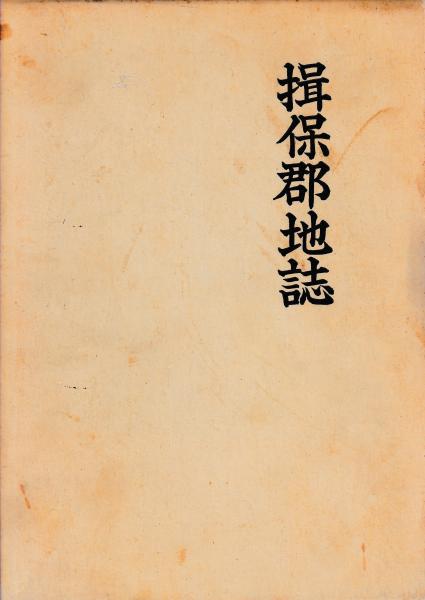 揖保郡地誌